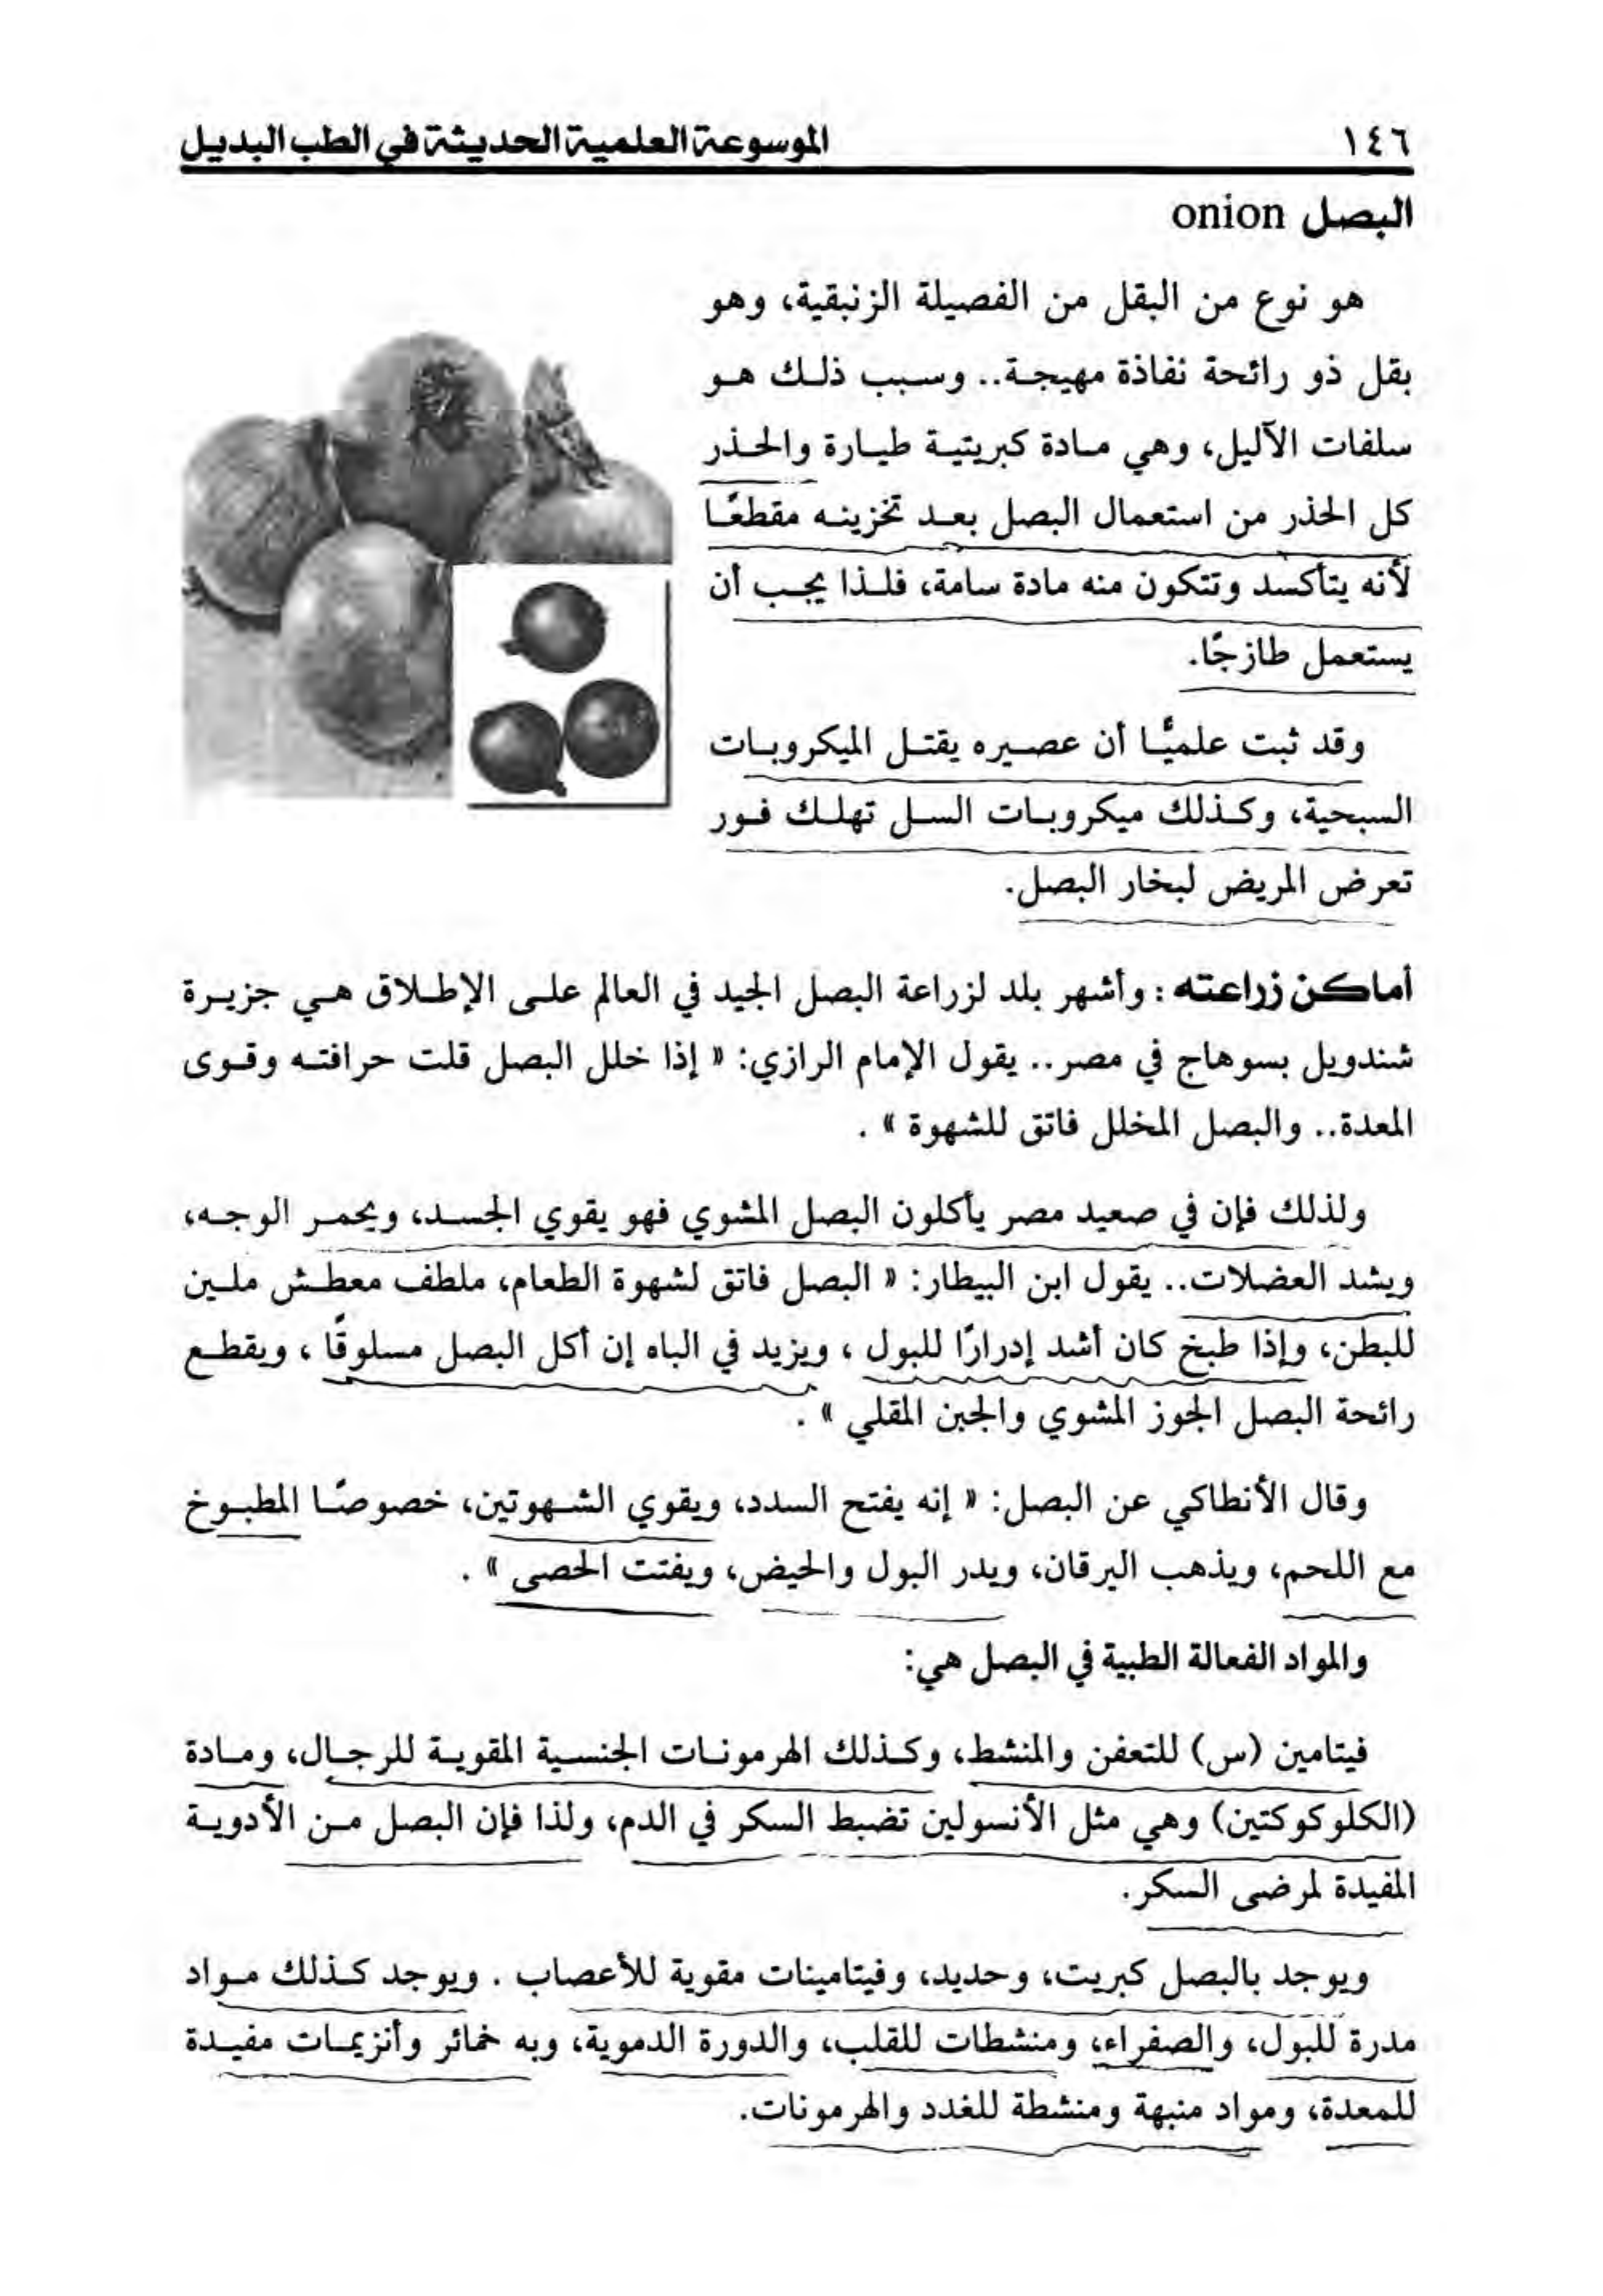 ١٤٦
الموسوعة العلمية الحديثة في الطب البديل
البصل onion
هو نوع من البقل من الفصيلة الزنبقية، وهو
بقل ذو رائحة نفاذة مهيجة.. وسبب ذلك هو
سلفات الآليل، وهي مادة كبريتية طيارة والحذر
كل الحذر من استعمال البصل بعد تخزينه مقطعًا
لأنه يتأكسد وتتكون منه مادة سامة، فلذا يجب أن
يستعمل طازجًا.
وقد ثبت علميًّا أن عصيره يقتل الميكروبات
السبحية، وكذلك ميكروبات السل تهلك فور
تعرض المريض لبخار البصل.
أماكن زراعته : وأشهر بلد لزراعة البصل الجيد في العالم على الإطلاق هي جزيرة
شندويل بسوهاج في مصر.. يقول الإمام الرازي: « إذا خلل البصل قلت حرافته وقوى
المعدة.. والبصل المخلل فاتق للشهوة » .
ولذلك فإن في صعيد مصر يأكلون البصل المشوي فهو يقوي الجسد، ويحمر الوجه،
ويشد العضلات.. يقول ابن البيطار: « البصل فاتق لشهوة الطعام، ملطف معطش ملين
للبطن، وإذا طبخ كان أشد إدرارًا للبول ، ويزيد في الباه إن أكل البصل مسلوقًا ، ويقطع
رائحة البصل الجوز المشوي والجبن المقلي » .
وقال الأنطاكي عن البصل: « إنه يفتح السدد، ويقوي الشهوتين، خصوصًا المطبوخ
مع اللحم، ويذهب اليرقان، ويدر البول والحيض، ويفتت الحصى » .
والمواد الفعالة الطبية في البصل هي:
فيتامين (س) للتعفن والمنشط، وكذلك الهرمونات الجنسية المقوية للرجال، ومادة
(الكلوكوكتين) وهي مثل الأنسولين تضبط السكر في الدم، ولذا فإن البصل من الأدوية
المفيدة لمرضى السكر.
ويوجد بالبصل كبريت، وحديد، وفيتامينات مقوية للأعصاب . ويوجد كذلك مواد
مدرة للبول، والصفراء، ومنشطات للقلب، والدورة الدموية، وبه خمائر وأنزيمات مفيدة
للمعدة، ومواد منبهة ومنشطة للغدد والهرمونات.